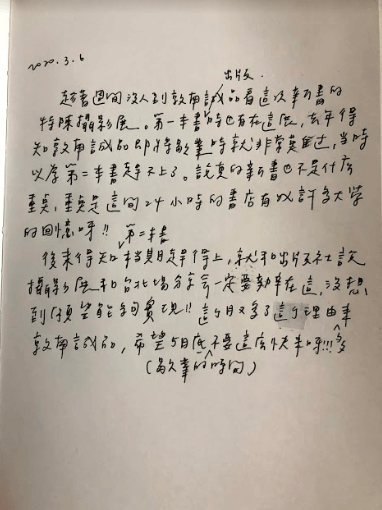 2020.3.6
出版
趁著週間沒人到敦南誠品看這次新書的
特陳攝影展。第一本書時也有在這展,去年得
知敦南誠品即將歇業時就非常莫過,當時
以為第二本書趕不上了。說真的新書也不是什底
重点,重点是這間24小時的書店有以許多大學
的回憶呀!!
第二本書
後來得知檔期趕得上,就和出版社說
攝影展和台北場分享會一定要動在這,沒想
到願望能夠實現!!這個月又多了這個理由來
敦南誠品,希望5月底不要這底快來呀!!!多
(歇業的時間)